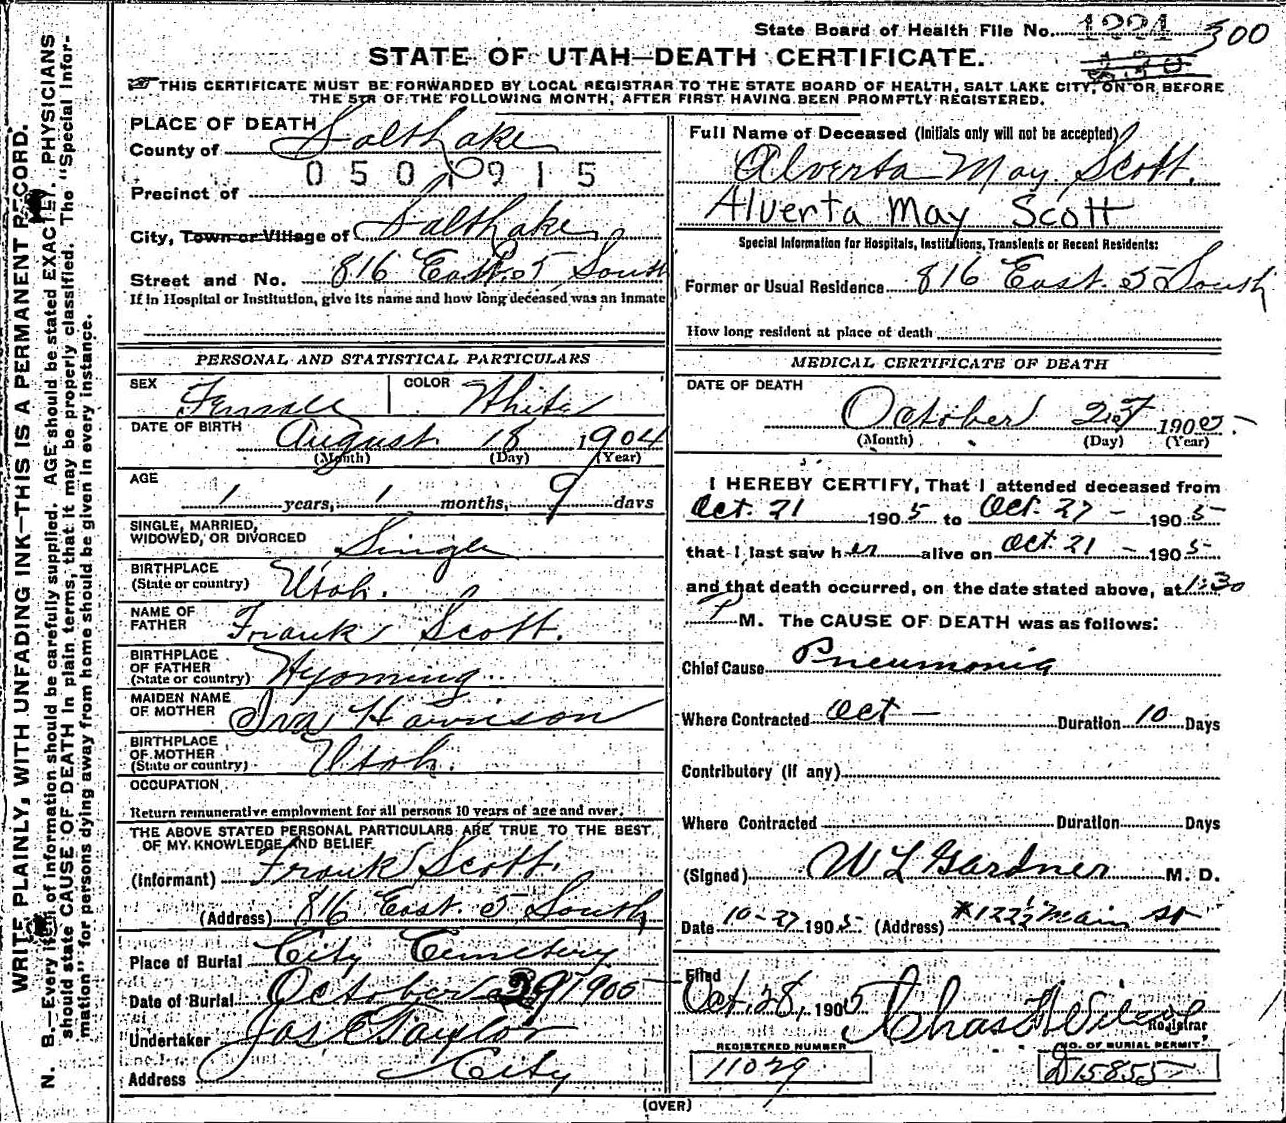 State Board of Health File No. 1224 300
STATE OF UTAH—DEATH CERTIFICATE.
THIS CERTIFICATE MUST BE FORWARDED BY LOCAL REGISTRAR TO THE STATE BOARD OF HEALTH, SALT LAKE CITY, ON OR BEFORE
THE 5TH OF THE FOLLOWING MONTH, AFTER FIRST HAVING BEEN PROMPTLY REGISTERED.
WRITE PLAINLY, WITH UNFADING INK—THIS IS A PERMANENT RECORD.
N. B.—Every item of information should be carefully supplied. AGE should be stated EXACTLY. PHYSICIANS
should state CAUSE OF DEATH in plain terms, that it may be properly classified. The "Special Infor-
mation" for persons dying away from home should be given in every instance.
PLACE OF DEATH
County of Salt Lake
0501915
Precinct of
City, Town or Village of Salt Lake
Street and No. 816 East 5 South
If in Hospital or Institution, give its name and how long deceased was an inmate
PERSONAL AND STATISTICAL PARTICULARS
SEX Female COLOR White
DATE OF BIRTH August 18 1904
(Month) (Day) (Year)
AGE
1 years, 1 months, 9 days
SINGLE, MARRIED,
WIDOWED, OR DIVORCED Single
BIRTHPLACE
(State or country) Utah.
NAME OF
FATHER Frank Scott.
BIRTHPLACE
OF FATHER
(State or country) Wyoming
MAIDEN NAME
OF MOTHER Iva Harrison
BIRTHPLACE
OF MOTHER
(State or country) Utah.
OCCUPATION
Return remunerative employment for all persons 10 years of age and over.
THE ABOVE STATED PERSONAL PARTICULARS ARE TRUE TO THE BEST
OF MY KNOWLEDGE AND BELIEF
(Informant) Frank Scott.
(Address) 816 East 5 South
Place of Burial City Cemetery
Date of Burial October 29 1905
Undertaker Jos E Taylor
Address City
Full Name of Deceased (Initials only will not be accepted)
Alverta May Scott.
Alverta May Scott
Special Information for Hospitals, Institutions, Transients or Recent Residents:
Former or Usual Residence 816 East 5 South
How long resident at place of death
MEDICAL CERTIFICATE OF DEATH
DATE OF DEATH
October 27 1905.
(Month) (Day) (Year)
I HEREBY CERTIFY, That I attended deceased from
Oct. 21 1905 to Oct. 27 - 1905
that I last saw her alive on Oct. 21 - 1905
and that death occurred, on the date stated above, at 1:30
P M. The CAUSE OF DEATH was as follows:
Chief Cause Pneumonia
Where Contracted Oct — Duration 10 Days
Contributory (if any)
Where Contracted Duration Days
(Signed) W L Gardner M. D.
Date 10-27 1905 (Address) #122½ Main St
Filed
Oct. 28, 1905 Chas Wilcox
Registrar
REGISTERED NUMBER NO. OF BURIAL PERMIT
11029 D15855
(OVER)